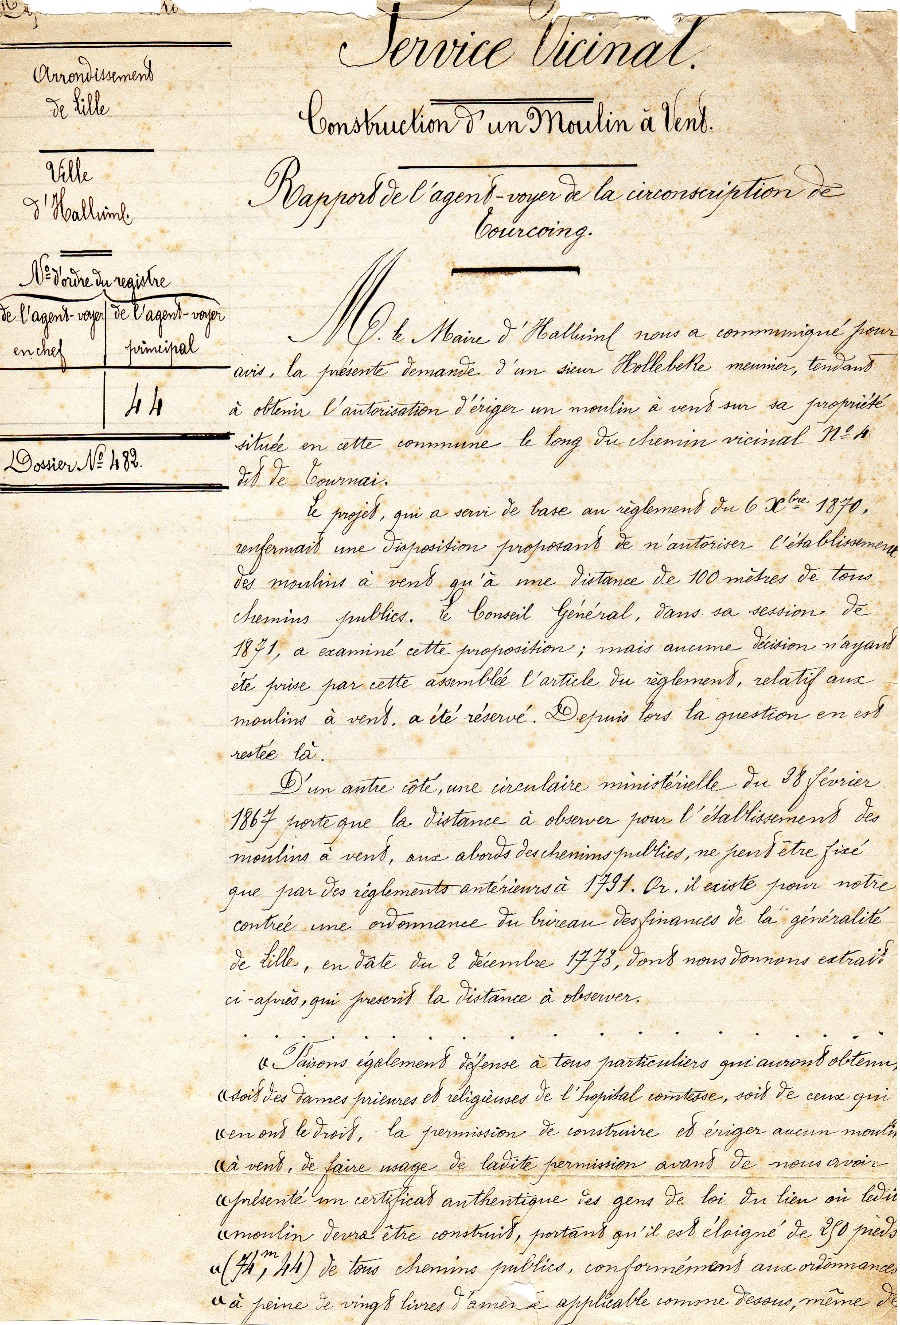 Service Vicinal.
Construction d'un Moulin à Vent.
Rapport de l'agent-voyer de la circonscription de
Tourcoing.
Arrondissement
de Lille
Ville
d'Halluin.
Nos d'ordre du registre
de l'agent-voyer
en chef
de l'agent-voyer
principal
44
Dossier No 482.
M. le Maire d'Halluin nous a communiqué pour
avis, la présente demande d'un sieur Hollebeke meunier, tendant
à obtenir l'autorisation d'ériger un moulin à vent sur sa propriété
située en cette commune le long du chemin vicinal No 4
dit de Tournai.
Le projet, qui a servi de base au règlement du 6 Xbre 1870,
renfermait une disposition proposant de n'autoriser l'établissement
des moulins à vent qu'à une distance de 100 mètres de tous
chemins publics. Le Conseil Général, dans sa session de
1871, a examiné cette proposition ; mais aucune décision n'ayant
été prise par cette assemblée l'article du règlement, relatif aux
moulins à vent, a été réservé. Depuis lors la question en est
restée là.
D'un autre côté, une circulaire ministérielle du 28 février
1867 porte que la distance à observer pour l'établissement des
moulins à vent, aux abords des chemins publics, ne peut être fixé
que par des règlements antérieurs à 1791. Or, il existe pour notre
contrée une ordonnance du bureau des finances de la généralité
de Lille, en date du 2 décembre 1773, dont nous donnons extrait
ci-après, qui prescrit la distance à observer.
. . . . . . . . . . . . . . . . . .
« Faisons également défense à tous particuliers qui auront obtenu,
« soit des dames prieures et religieuses de l'hopital comtesse, soit de ceux qui
« en ont le droit, la permission de construire et ériger aucun moulin
« à vent, de faire usage de ladite permission avant de nous avoir
« présenté un certificat authentique des gens de loi du lieu où ledit
« moulin devra être construit, portant qu'il est éloigné de 250 pieds
« (74m,44) de tous chemins publics, conformément aux ordonnances
« à peine de vingt livres d'amende applicable comme dessus, même de